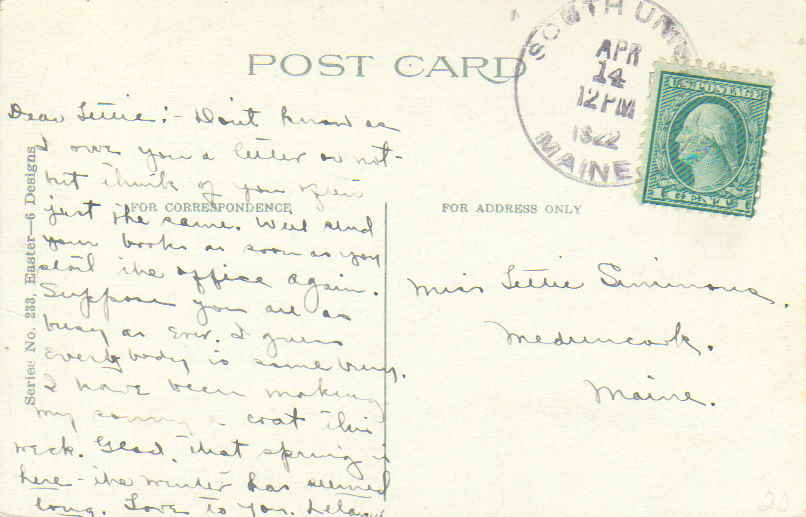 POST CARD
SOUTH UNION
APR
14
12 PM
1922
MAINE
U.S. POSTAGE
Series No. 233, Easter—6 Designs
FOR CORRESPONDENCE
FOR ADDRESS ONLY
Dear Lettie:- Don't know as
I owe you a letter or not-
but think of you often
just the same. Will send
your books as soon as you
start the office again.
Suppose you are as
busy as ever. I guess
Everybody is some busy.
I have been making
my a coat this
week. Glad that spring is
here - the winter has seemed
long. Love to you.
Miss Lettie Simmons,
Meduncook,
Maine.